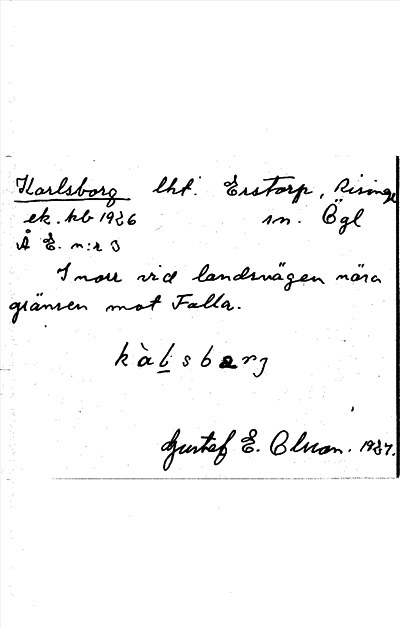 Karlsborg lht. Erstorp, Risinge
ek. kb 1926 sn. Ögl
Å E. n:r 3
I norr vid landsvägen nära
gränsen mot Falla.
kàḷsbarj
Gustaf E. Olsson. 1927.